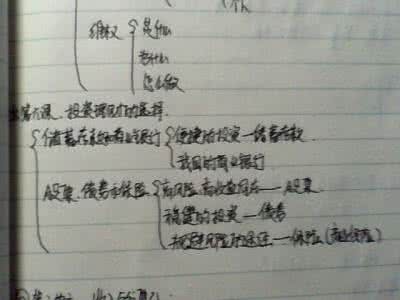 个人
维权 是什么
为什么
怎么做
第六课、投资理财的选择
储蓄存款和商业银行 便捷的投资—储蓄存款
我国的商业银行
股票、债券和保险 高风险高收益同在—股票
稳健的投资—债券
规避风险的途径—保险(商业保险)